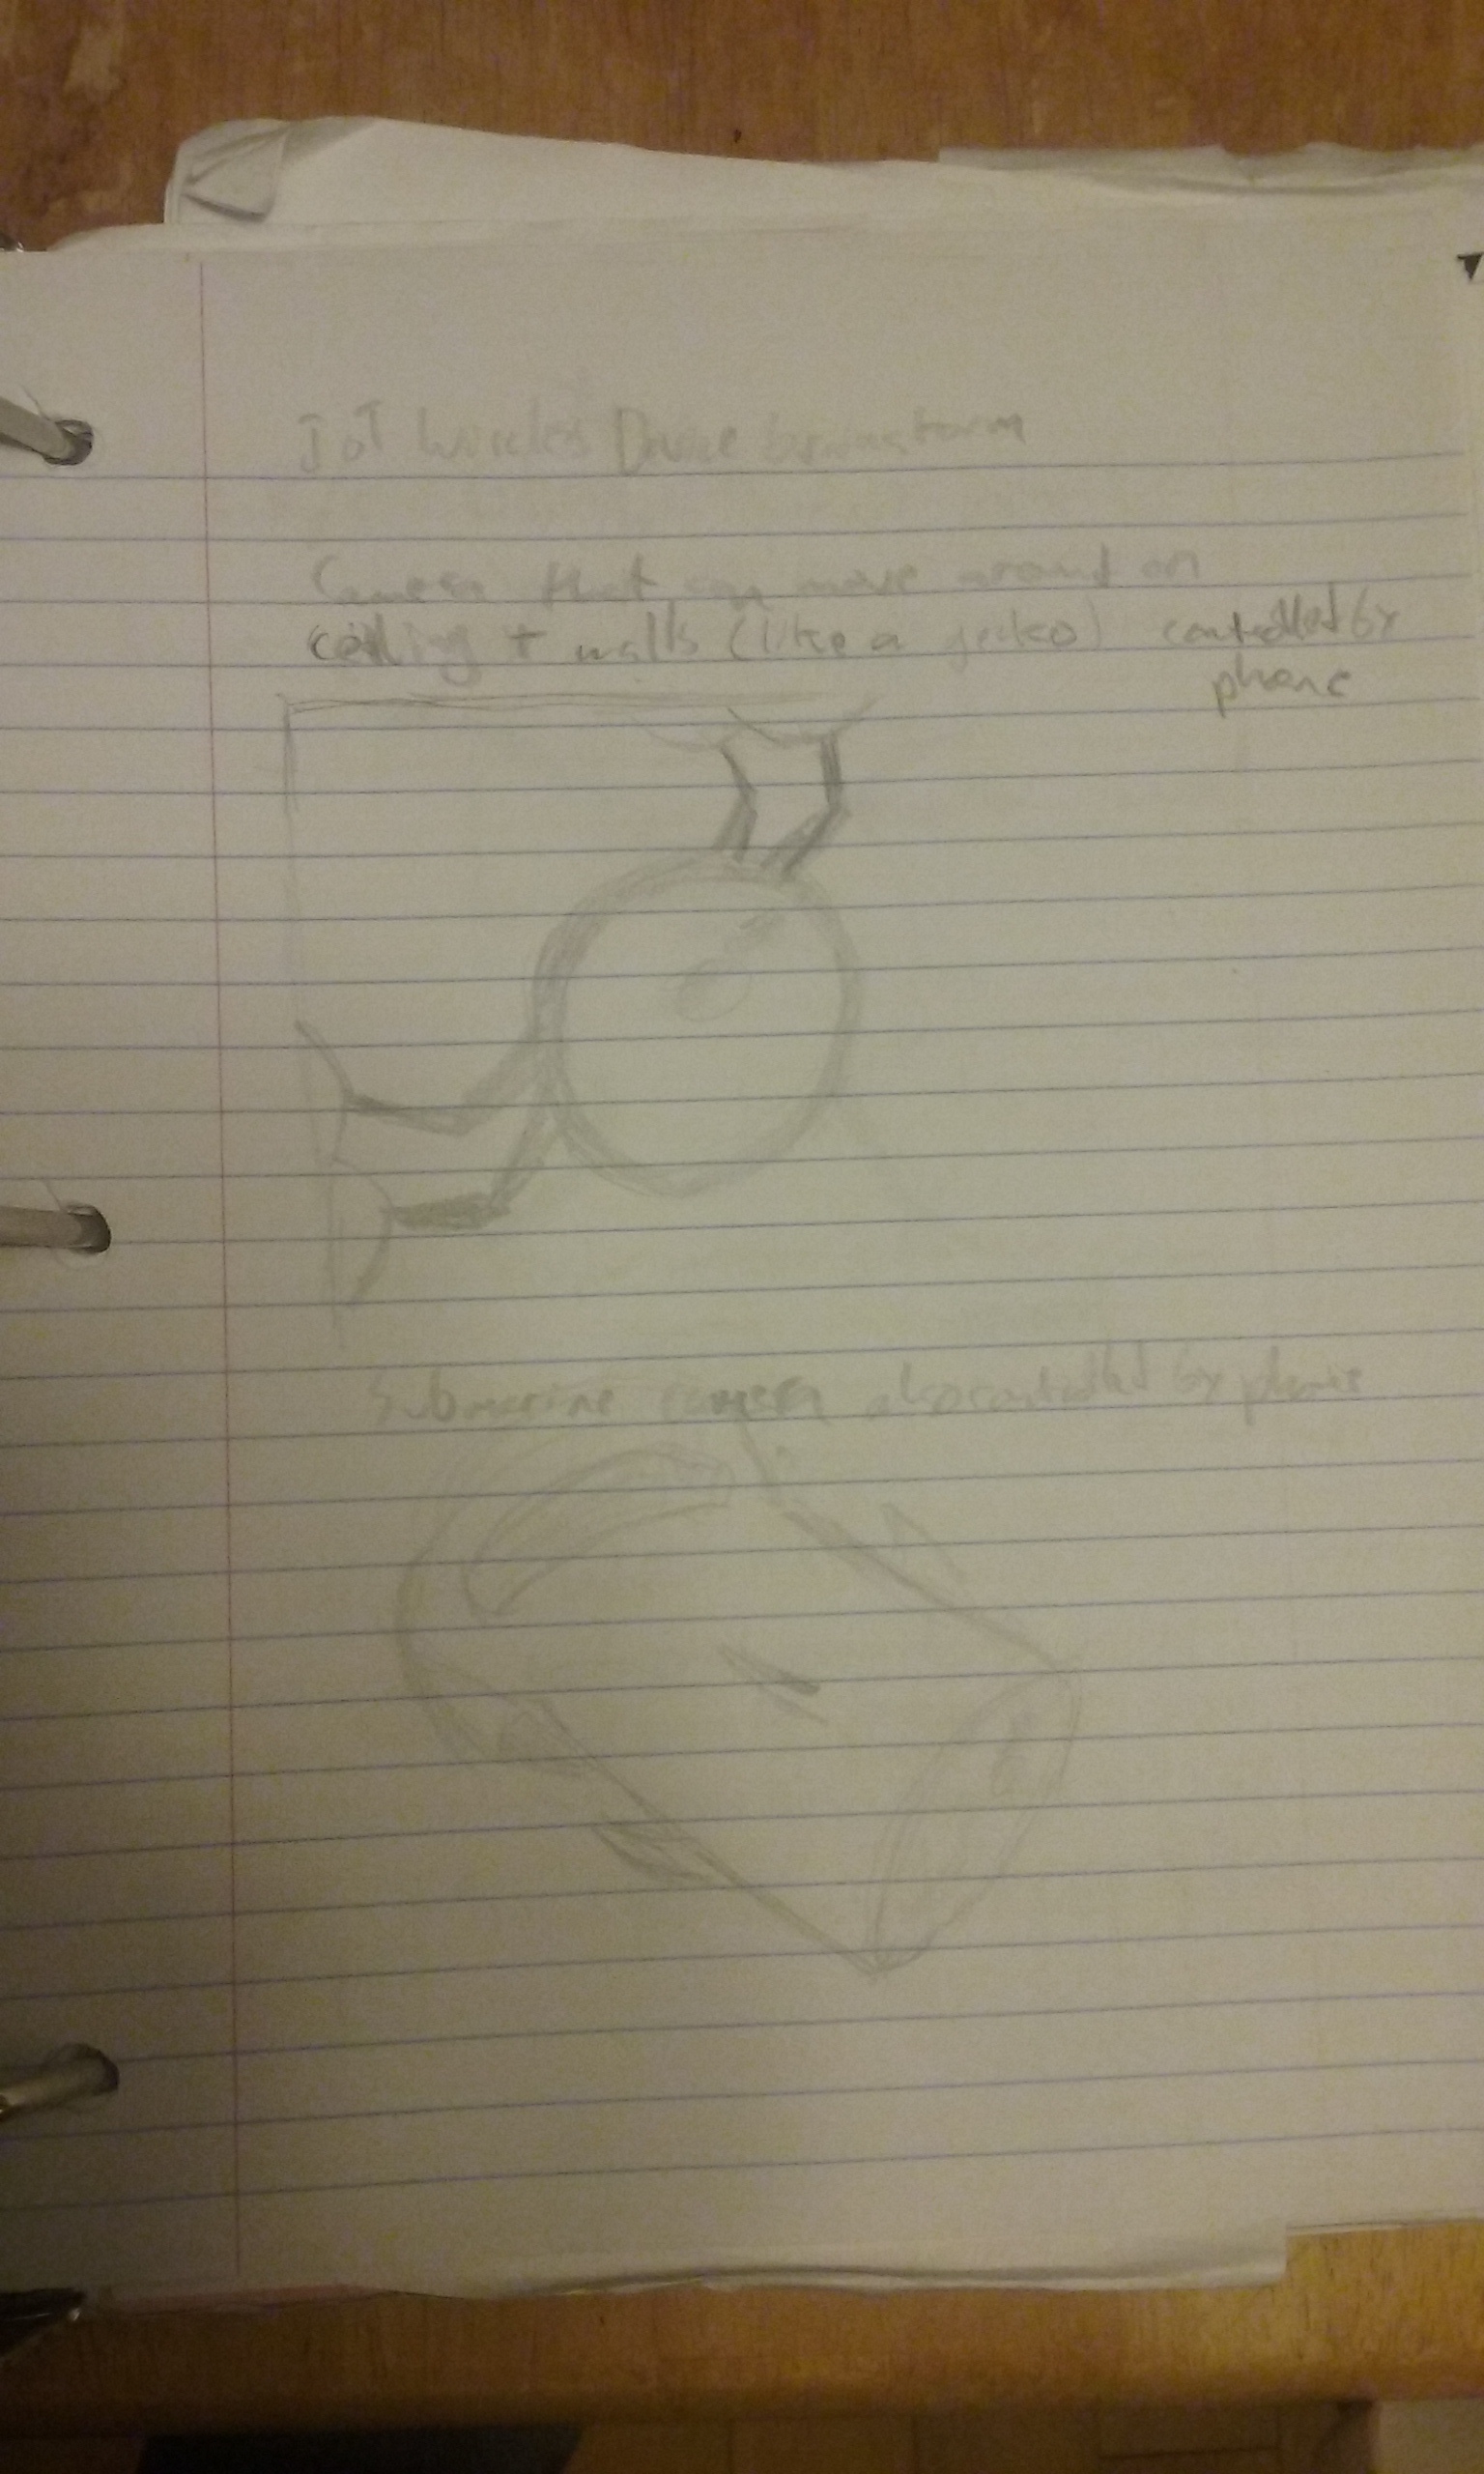 IoT Wireless Device brainstorm
Camera that can move around on
ceiling + walls (like a gecko) controlled by
phone
Submarine camera also controlled by phone